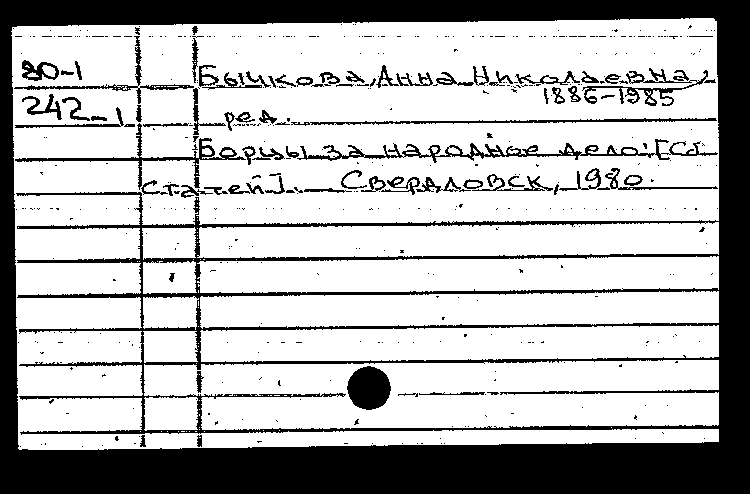 80-1 Бычкова, Анна Николаевна,
1886-1985
242-1 ред.
Борцы за народное дело: [Сб.
статей]. Свердловск, 1980.